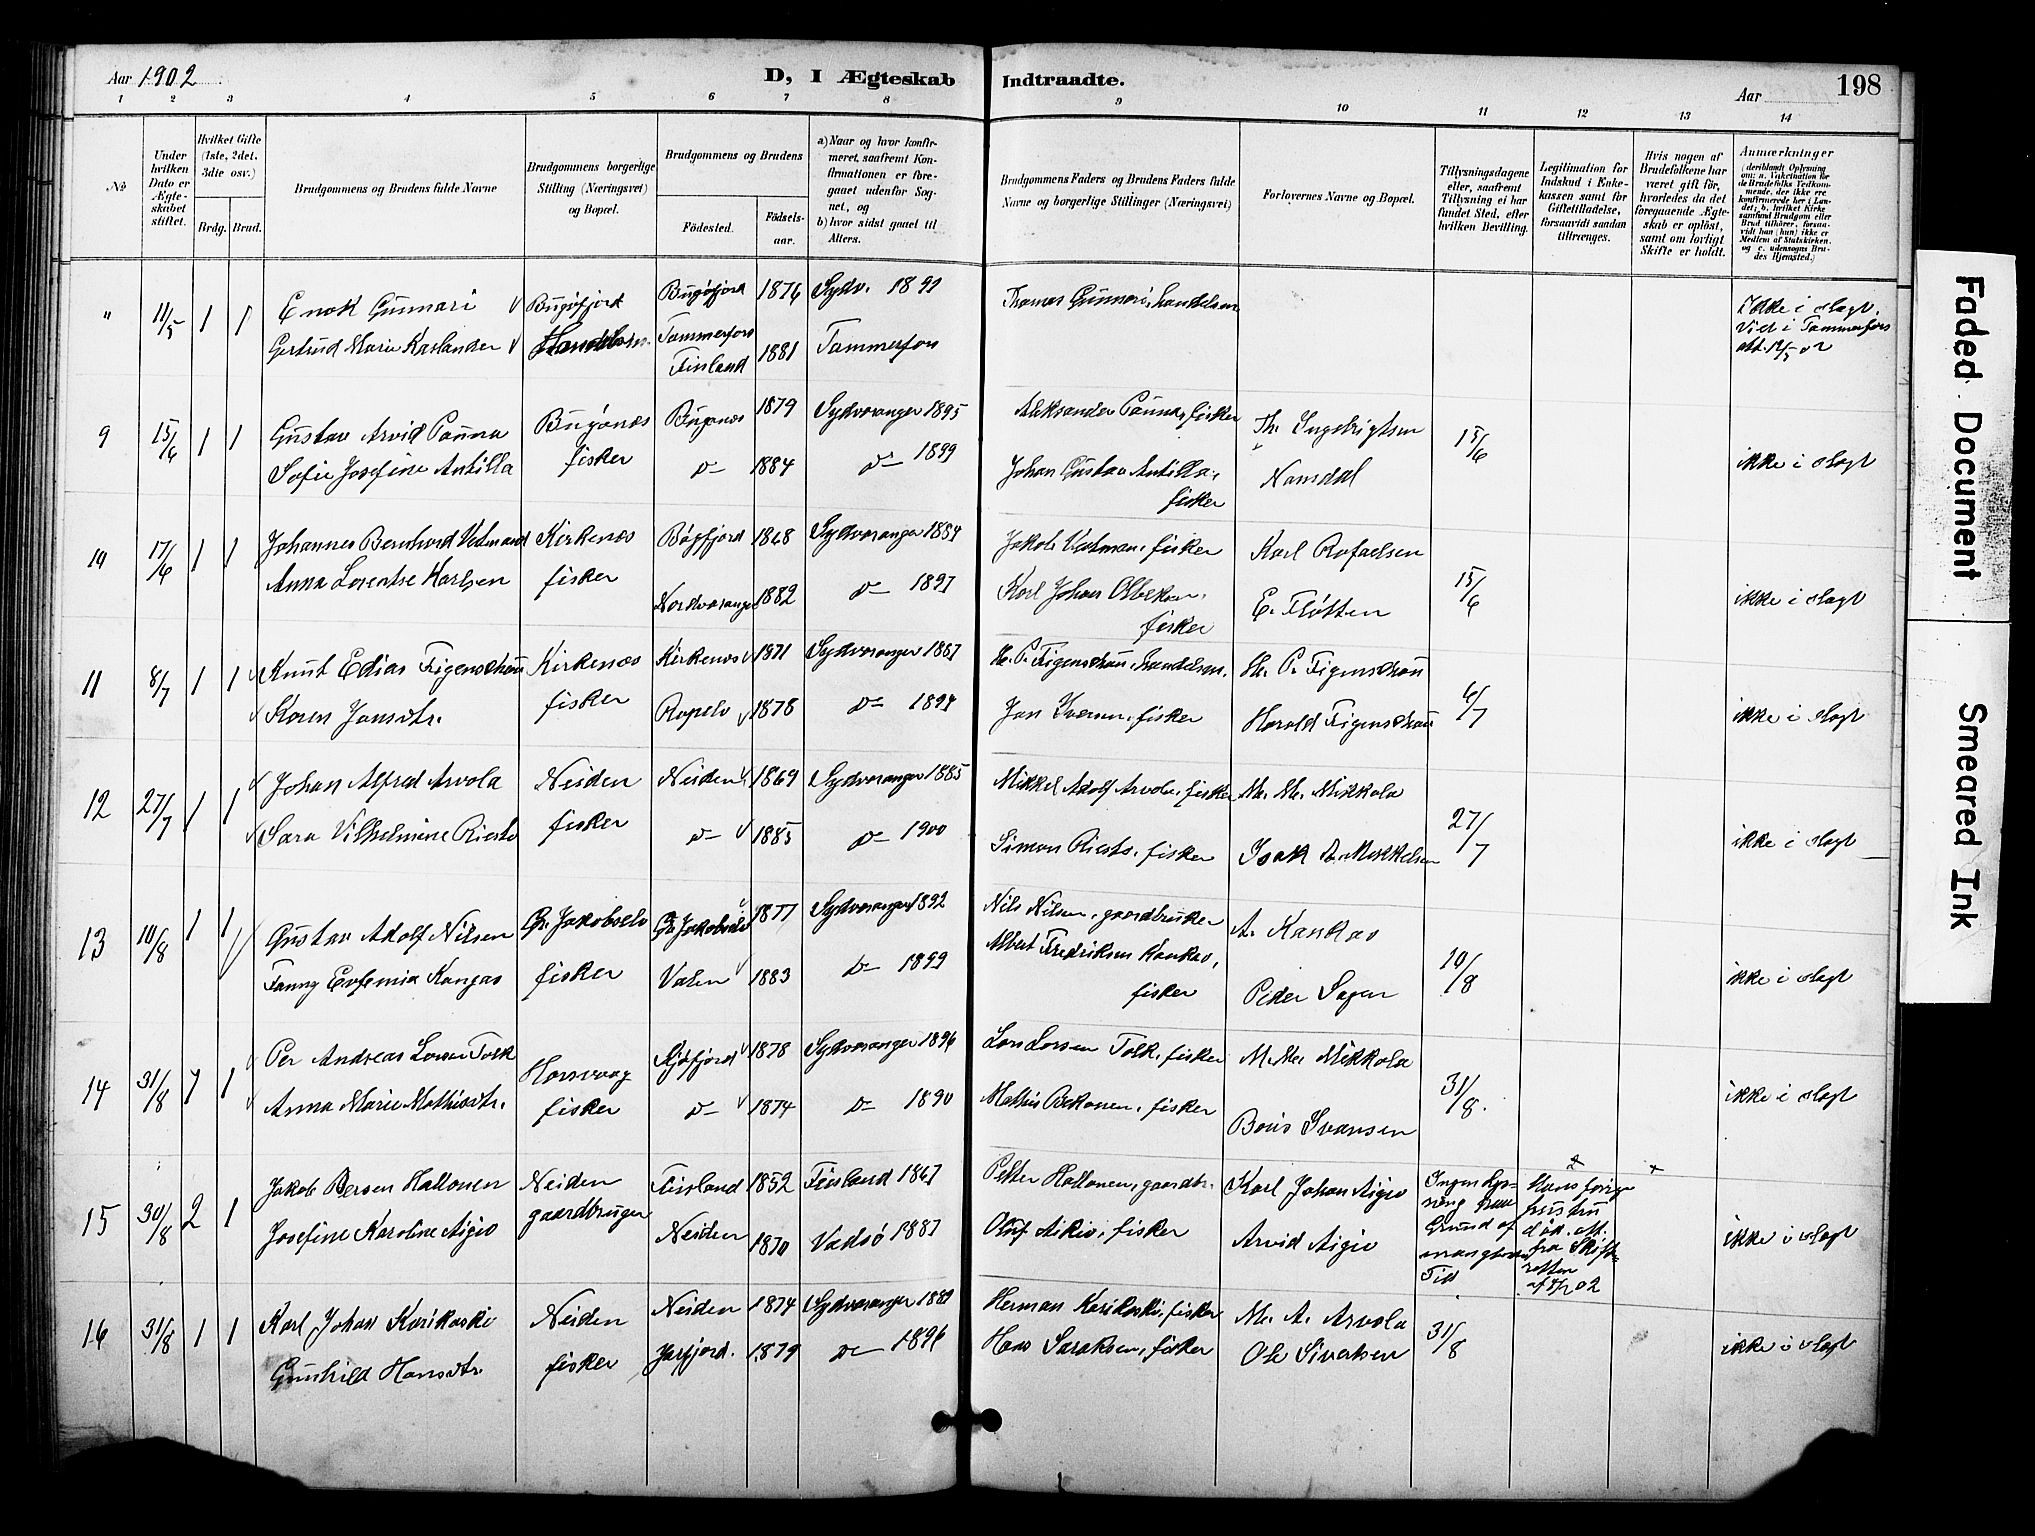 Aar 1902
D, I Ægteskab Indtraadte.
Aar 198
1 2 3 4 5 6 7 8 9 10 11 12 13 14
№
Under hvilken Dato er Ægteskabet stiftet.
Hvilket Gifte (1ste, 2det, 3die osv.)
Brdg. Brud.
Brudgommens og Brudens fulde Navne
Brudgommens borgerlige Stilling (Næringsvei) og Bopæl.
Brudgommens og Brudens
Fødested. Fødselsaar.
a) Naar og hvor konfirmeret, saafremt Konfirmationen er foregaaet udenfor Sognet, og
b) hvor sidst gaaet til Alters.
Brudgommens Faders og Brudens Faders fulde Navne og borgerlige Stillinger (Næringsvei)
Forlovernes Navne og Bopæl.
Tillysningsdagene eller, saafremt Tillysning ei har fundet Sted, efter hvilken Bevilling.
Legitimation for Indskud i Enkekassen samt for Giftetilladelse, forsaavidt saadan tiltrænges.
Hvis nogen af Brudefolkene har været gift før, hvorledes da det foregaaende Ægteskab er opløst, samt om lovligt Skifte er holdt.
Anmærkninger
(deriblandt Oplysning om: a. Vakcination for de Brudefolks Vedkommende, der ikke ere konfirmerede her i Landet; b. hvilket Kirkesamfund Brudgom eller Brud tilhører, forsaavidt han (hun) ikke er Medlem af Statskirken, og c. udensogns Brudes Hjemsted.)
" 11/5 1 1 Enok Gunnari Bugøfjord Bugøfjord 1876 Sydv. 1891 Thomas Gunnari, handelsm Ikke i slegt.
Gertrud Marie Kaslander Handelsm. Tammerfors Finland 1881 Tammerfors Viet i Tammerfors
9 15/6 1 1 Gustav Arvid Pauna Bugønes Bugønes 1879 Sydvaranger 1895 Aleksander Pauna, fisker Th. Ingebrigtsen 15/6
Sofie Josefine Antilla fisker d– 1884 d– 1899 Johan Gustav Antilla, fisker Namsdal ikke i slegt
10 17/6 1 1 Johannes Bernhard Vatmand Kirkenes Bøgfjord 1868 Sydvaranger 1884 Jakob Vatman, fisker Karl Rafaelsen
Anna Lorentse Karlsen fisker Nordvaranger 1882 d– 1897 Karl Johan fisker E. Fløtten 15/6 ikke i slegt
11 8/7 1 1 Knut Edias Figenschau Kirkenes Kirkenes 1871 Sydvaranger 1887 H. P. Figenschau, handelsm. H. P. Figenschau
Karen Jansdtr. fisker Ropelv 1878 d– 1894 Jan Iversen, fisker Harald Figenschau 6/7 ikke i slegt
12 27/7 1 1 Johan Alfred Arvola Neiden Neiden 1869 Sydvaranger 1885 Mikkel Adolf Arvola, fisker M. M. Mikkola
Sara Vilhelmine Riesto fisker d– 1885 d– 1900 Simon Riesto, fisker Isak A. Mikkelsen 27/7 ikke i slegt
13 10/8 1 1 Gustav Adolf Nilsen Gr. Jakobselv Gr. Jakobselv 1877 Sydvaranger 1892 Nils Nilsen, gaardbruker A. Kankas
Fanny Eufemia Kangas fisker Valen 1883 d– 1899 Albert Fredriksen Kankas, fisker Peder Sagen 10/8 ikke i slegt
14 31/8 1 1 Per Andreas Larsen Tolk Hassvaag Kjøfjord 1878 Sydvaranger 1896 Lars Larsen Tolk, fisker M. M. Mikkola
Anna Marie Mathisdtr. fisker d– 1874 d– 1890 Mathis Pekonen, fisker Boris Ivansen 31/8. ikke i slegt
15 30/8 2 1 Jakob Persen Hallonen Neiden Finland 1852 Finland 1867 Petter Hallonen, gaardbr. Karl Johan Aigio Ingen Lysning paa Grund af mangl. Tid Hans forrige hustru død. Att. fra Skifteretten
Josefine Karoline Aigio gaardbruger Neiden 1870 Vadsø 1887 Oluf Aikio, fisker Arvid Aigio ikke i slegt
16 31/8 1 1 Karl Johan Karikoski Neiden Neiden 1874 Sydvaranger 1889 Herman Karikoski, fisker M. A. Arvola 31/8
Gunhild Hansdtr. fisker Jarfjord. 1879 d– 1896 Hans Saraksen, fisker Ole Sivertsen ikke i slegt
Faded Document
Smeared Ink